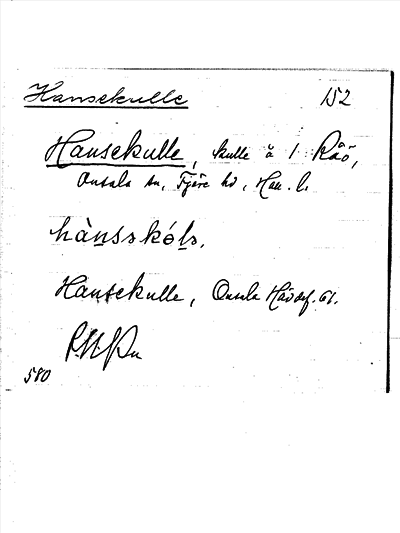 Hansekulle 152
Hansekulle, kulle å 1 Råö,
Onsala sn, Fjäre hd, Hall. l.
hànsskóls.
Hansekulle, Onsala
580